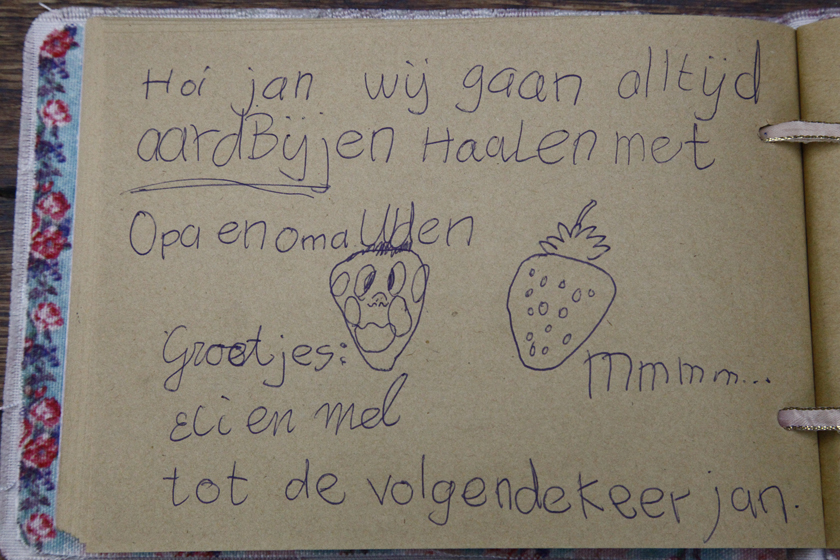 Hoi jan wij gaan alltijd
aardBijjen HaaLen met
Opa en oma Uden
Mmmm...
Groetjes:
Eli en mel
tot de volgende keer jan.